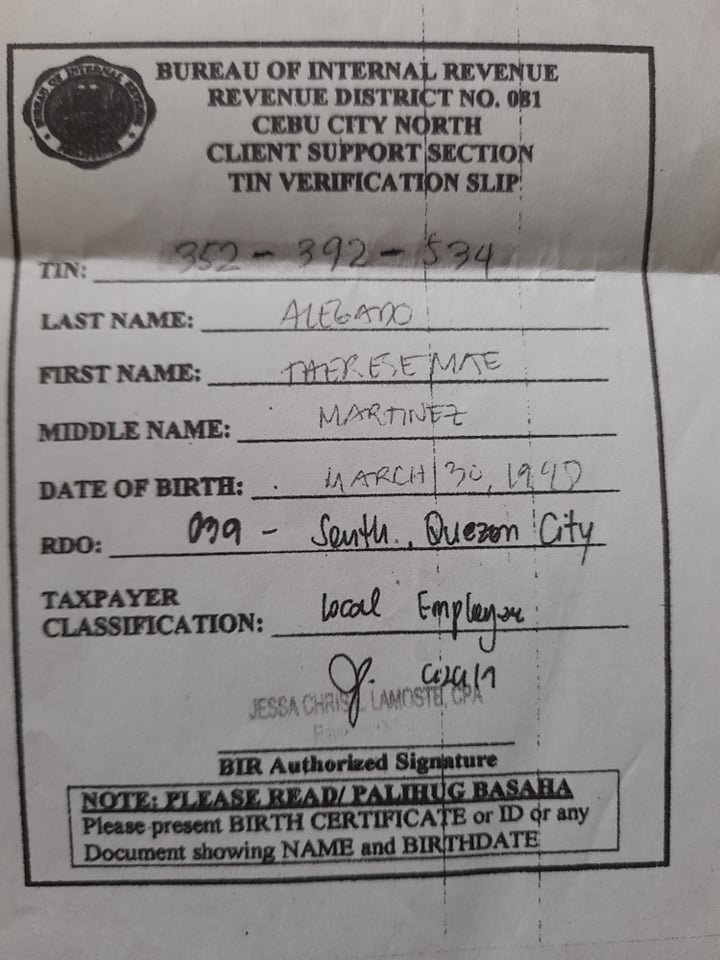 BUREAU OF INTERNAL REVENUE
BUREAU OF INTERNAL REVENUE
REVENUE DISTRICT NO. 081
CEBU CITY NORTH
CLIENT SUPPORT SECTION
TIN VERIFICATION SLIP
TIN: 352-392-534
LAST NAME: ALEGADO
FIRST NAME: THERESE MAE
MIDDLE NAME: MARTINEZ
DATE OF BIRTH: MARCH 30, 1990
RDO: 039 - South, Quezon City
TAXPAYER
CLASSIFICATION: Local Employee
JESSA CHRIS LAMOSTE, CPA
BIR Authorized Signature
NOTE: PLEASE READ/ PALIHUG BASAHA
Please present BIRTH CERTIFICATE or ID or any
Document showing NAME and BIRTHDATE